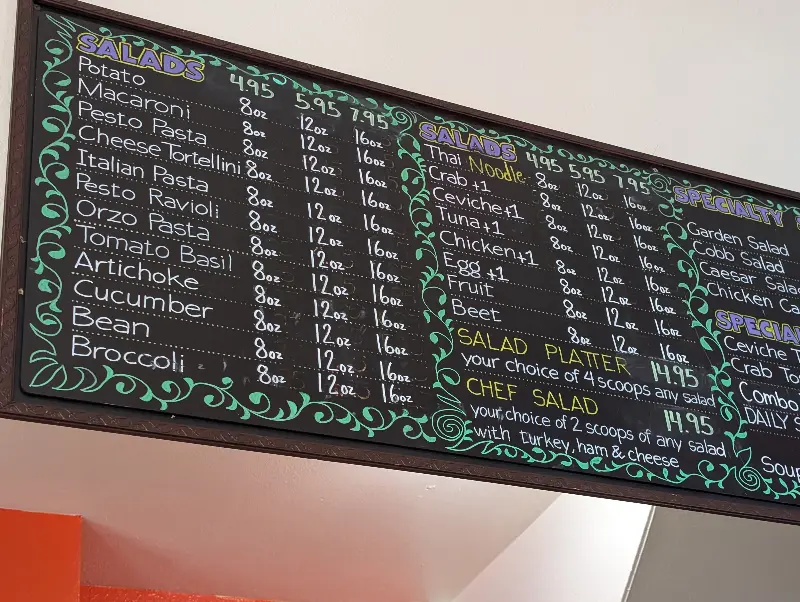 SALADS 4.95 5.95 7.95
Potato 8oz 12oz 16oz
Macaroni 8oz 12oz 16oz
Pesto Pasta 8oz 12oz 16oz
Cheese Tortellini 8oz 12oz 16oz
Italian Pasta 8oz 12oz 16oz
Pesto Ravioli 8oz 12oz 16oz
Orzo Pasta 8oz 12oz 16oz
Tomato Basil 8oz 12oz 16oz
Artichoke 8oz 12oz 16oz
Cucumber 8oz 12oz 16oz
Bean 8oz 12oz 16oz
Broccoli 8oz 12oz 16oz
SALADS 4.95 5.95 7.95
Thai Noodle 8oz 12oz 16oz
Crab +1 8oz 12oz 16oz
Ceviche +1 8oz 12oz 16oz
Tuna +1 8oz 12oz 16oz
Chicken +1 8oz 12oz 16oz
Egg +1 8oz 12oz 16oz
Fruit 8oz 12oz 16oz
Beet 8oz 12oz 16oz
SALAD PLATTER 14.95
your choice of 4 scoops any salad
CHEF SALAD 14.95
your choice of 2 scoops of any salad
with turkey, ham & cheese
SPECIALTY
Garden Salad
Cobb Salad
Caesar Salad
Chicken
Ceviche
Crab
Combo
DAILY
Soup